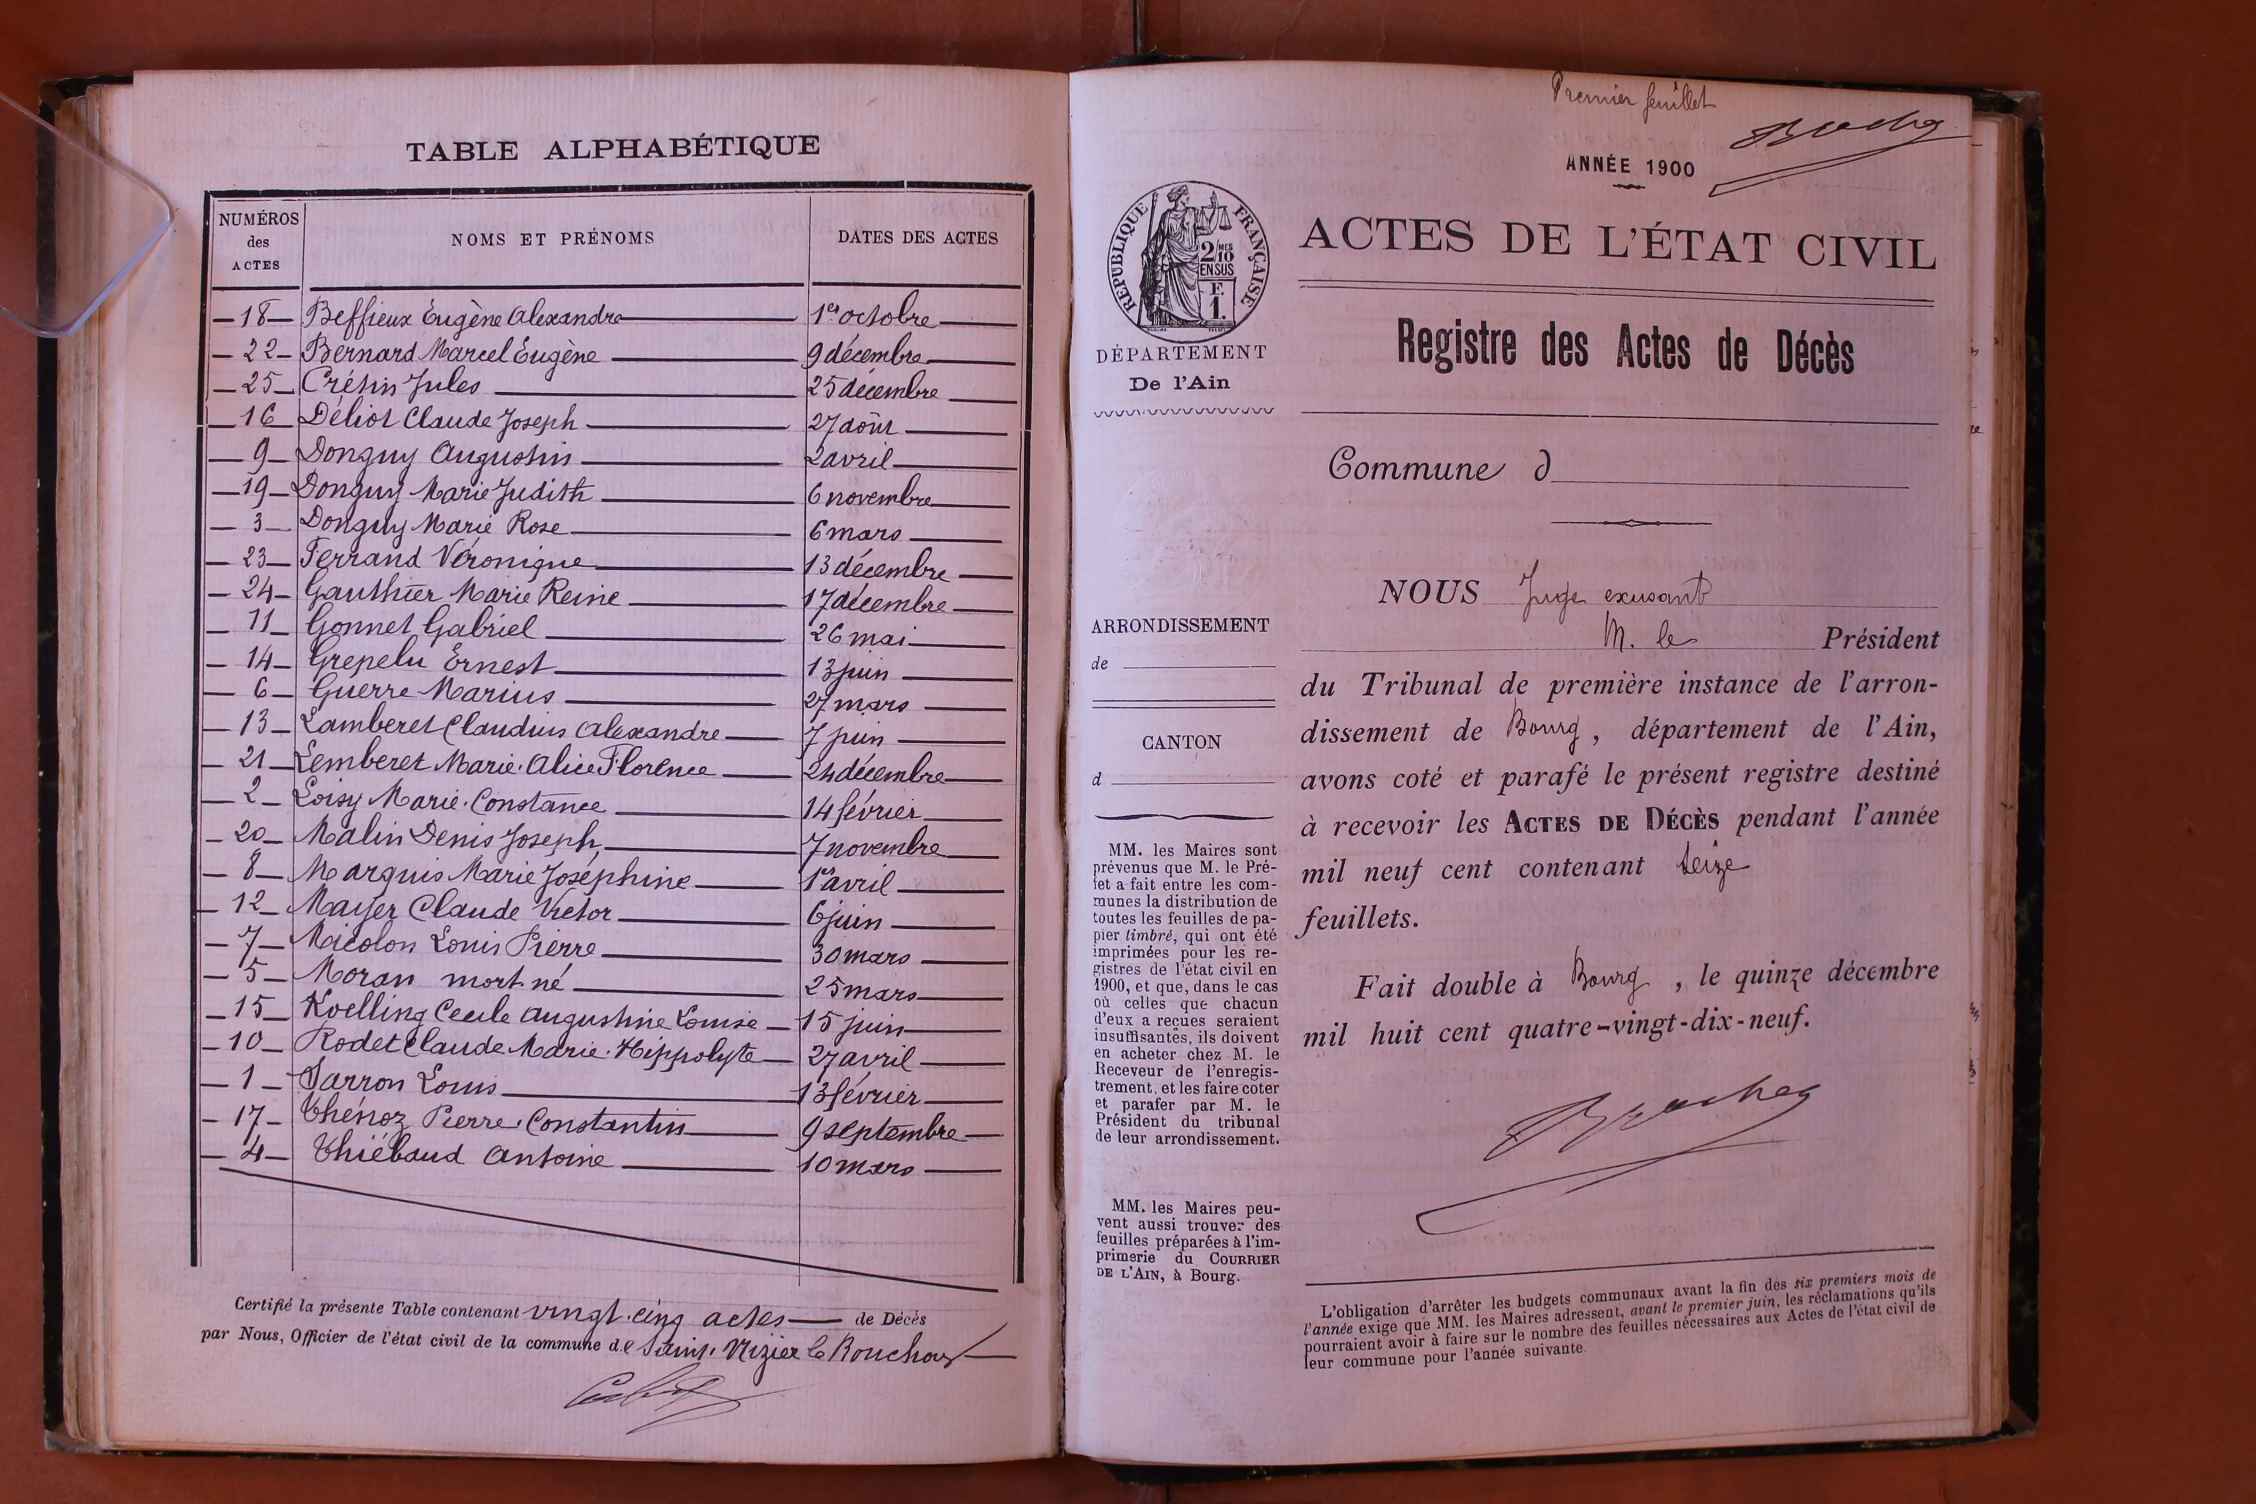 TABLE ALPHABÉTIQUE
NUMÉROS des ACTES NOMS ET PRÉNOMS DATES DES ACTES
18 Beffieux Eugène Alexandre 1er octobre
22 Bernard Marcel Eugène 9 décembre
25 Crétin Jules 25 décembre
16 Déliot Claude Joseph 27 août
9 Donguy Augustin 2 avril
19 Donguy Marie Judith 6 novembre
3 Donguy Marie Rose 6 mars
23 Ferrand Véronique 13 décembre
24 Gauthier Marie Reine 17 décembre
11 Gonnet Gabriel 26 mai
14 Grepelu Ernest 13 juin
6 Guerre Marius 27 mars
13 Lamberet Claudius Alexandre 7 juin
21 Lemberet Marie Alice Florence 24 décembre
2 Loisy Marie Constance 14 février
20 Malin Denis Joseph 7 novembre
8 Marquis Marie Joséphine 1er avril
12 Mayer Claude Victor 6 juin
7 Micolon Louis Pierre 30 mars
5 Moran mort-né 25 mars
15 Koelling Cecile Augustine Louise 15 juin
10 Rodet Claude Marie Hippolyte 27 avril
1 Sarron Louis 13 février
17 Thénoz Pierre Constantin 9 septembre
4 Thiébaud Antoine 10 mars
Certifié la présente Table contenant vingt-cinq actes de Décès
par Nous, Officier de l'état civil de la commune de Saint-Nizier le Bouchoux
Premier feuillet
ANNÉE 1900
RÉPUBLIQUE FRANÇAISE
2/10 MES
EN SUS
F.
1.
ACTES DE L'ÉTAT CIVIL
Registre des Actes de Décès
DÉPARTEMENT
De l'Ain
Commune d
ARRONDISSEMENT
de
CANTON
d
MM. les Maires sont
prévenus que M. le Pré-
fet a fait entre les com-
munes la distribution de
toutes les feuilles de pa-
pier timbré, qui ont été
imprimées pour les re-
gistres de l'état civil en
1900, et que, dans le cas
où celles que chacun
d'eux a reçues seraient
insuffisantes, ils doivent
en acheter chez M. le
Receveur de l'enregis-
trement, et les faire coter
et parafer par M. le
Président du tribunal
de leur arrondissement.
MM. les Maires peu-
vent aussi trouver des
feuilles préparées à l'im-
primerie du COURRIER
DE L'AIN, à Bourg.
NOUS Juge excusant
M. le Président
du Tribunal de première instance de l'arron-
dissement de Bourg, département de l'Ain,
avons coté et parafé le présent registre destiné
à recevoir les ACTES DE DÉCÈS pendant l'année
mil neuf cent contenant seize
feuillets.
Fait double à Bourg, le quinze décembre
mil huit cent quatre-vingt-dix-neuf.
L'obligation d'arrêter les budgets communaux avant la fin des six premiers mois de
l'année exige que MM. les Maires adressent, avant le premier juin, les réclamations qu'ils
pourraient avoir à faire sur le nombre des feuilles nécessaires aux Actes de l'état civil de
leur commune pour l'année suivante.